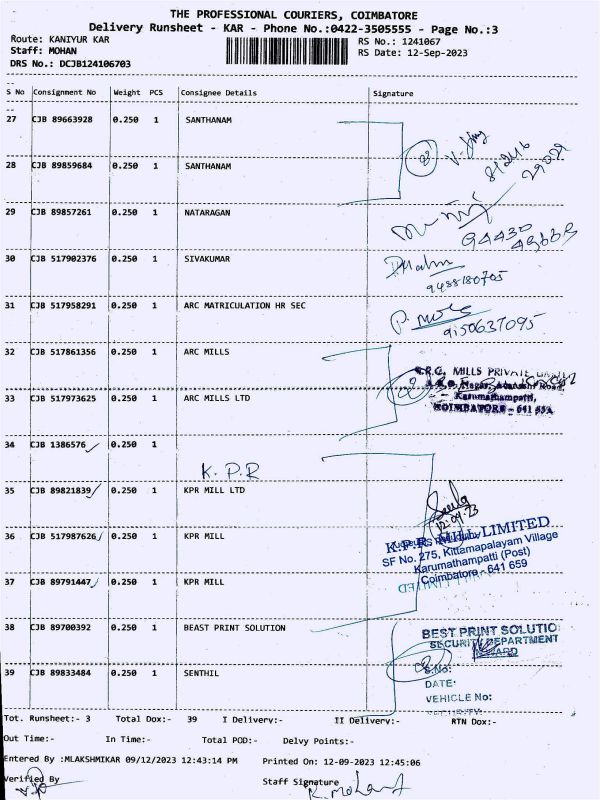 THE PROFESSIONAL COURIERS, COIMBATORE
Delivery Runsheet - KAR - Phone No.:0422-3505555 - Page No.:3
Route: KANIYUR KAR
RS No.: 1241067
Staff: MOHAN
RS Date: 12-Sep-2023
DRS No.: DCJB124106703
S No Consignment No Weight PCS Consignee Details Signature
27 CJB 89663928 0.250 1 SANTHANAM
28 CJB 89859684 0.250 1 SANTHANAM
29 CJB 89857261 0.250 1 NATARAGAN
94430
30 CJB 517902376 0.250 1 SIVAKUMAR
9488180705
31 CJB 517958291 0.250 1 ARC MATRICULATION HR SEC
9150637095
32 CJB 517861356 0.250 1 ARC MILLS
MILLS PRIVATE
33 CJB 517973625 0.250 1 ARC MILLS LTD
Karumathampatti,
COIMBATORE - 641 659
34 CJB 1386576 0.250 1
K.P.R
35 CJB 89821839 0.250 1 KPR MILL LTD
36 CJB 517987626 0.250 1 KPR MILL
K.P.R. MILL LIMITED
SF No. 275, Kittamapalayam Village
Karumathampatti (Post)
Coimbatore - 641 659
37 CJB 89791447 0.250 1 KPR MILL
38 CJB 89700392 0.250 1 BEAST PRINT SOLUTION
BEST PRINT SOLUTIO
SECURITY DEPARTMENT
INWARD
39 CJB 89833484 0.250 1 SENTHIL
S.No:
DATE:
VEHICLE No:
SECURITY:
Tot. Runsheet:- 3 Total Dox:- 39 I Delivery:- II Delivery:- RTN Dox:-
Out Time:- In Time:- Total POD:- Delvy Points:-
Entered By :MLAKSHMIKAR 09/12/2023 12:43:14 PM Printed On: 12-09-2023 12:45:06
Verified By Staff Signature
K. Mohan